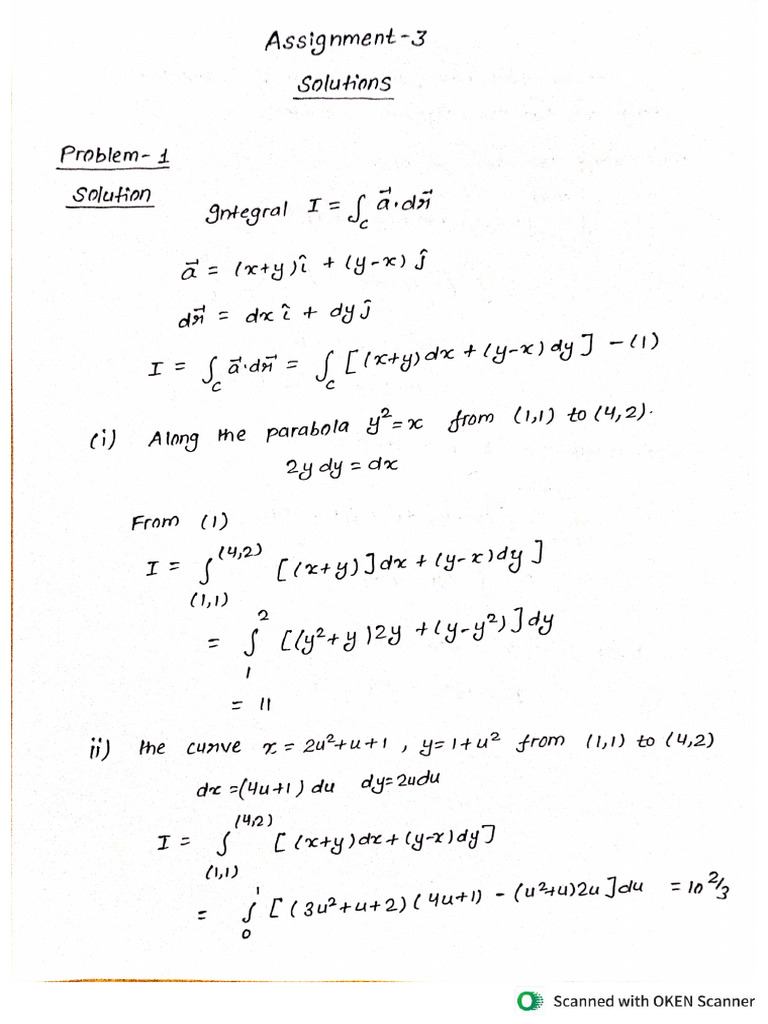 Assignment-3
Solutions
Problem-1
Solution
Integral I = ∫_C a⃗·dr⃗
a⃗ = (x+y)î + (y-x)ĵ
dr⃗ = dx î + dy ĵ
I = ∫_C a⃗·dr⃗ = ∫_C [(x+y)dx + (y-x)dy] - (1)
(i) Along the parabola y²=x from (1,1) to (4,2).
2y dy = dx
From (1)
I = ∫_(1,1)^(4,2) [(x+y)]dx + (y-x)dy]
= ∫_1^2 [(y²+y)2y + (y-y²)]dy
= 11
ii) the curve x = 2u²+u+1, y=1+u² from (1,1) to (4,2)
dx =(4u+1) du dy=2udu
I = ∫_(1,1)^(4,2) [(x+y)dx+(y-x)dy]
= ∫_0^1 [(3u²+u+2)(4u+1) - (u²+u)2u]du = 10 2/3
Scanned with OKEN Scanner